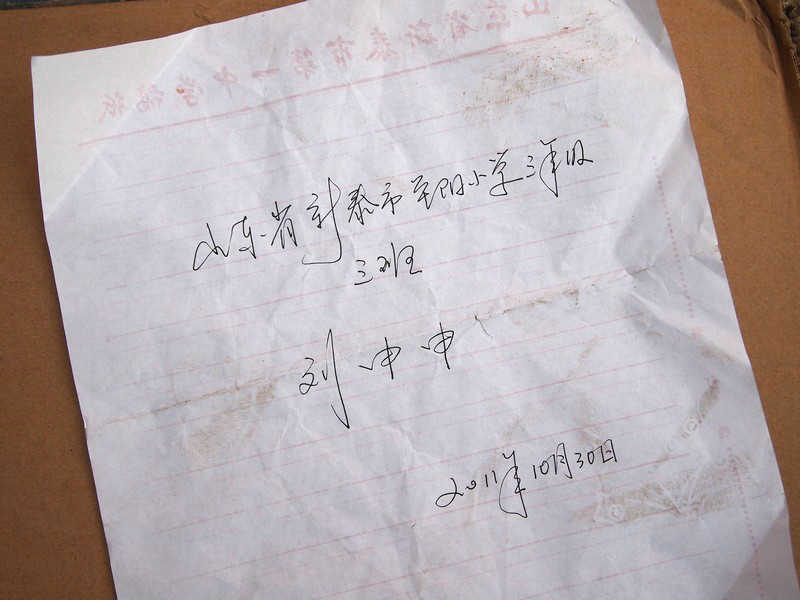 山东省新泰市第一中学稿纸
山东省新泰市平阳小学三年级
三班
刘申申
2011年10月30日